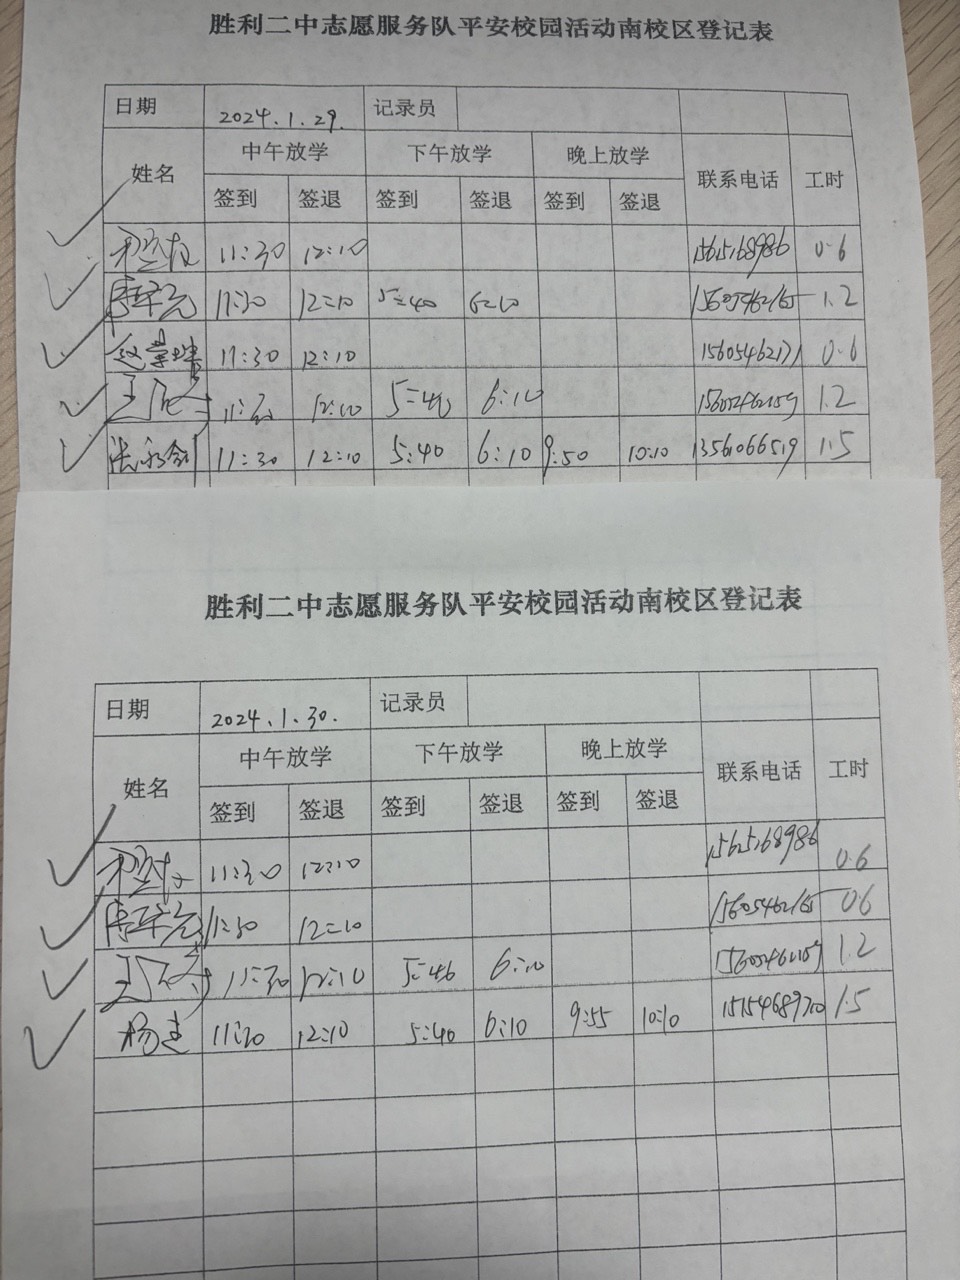 胜利二中志愿服务队平安校园活动南校区登记表
日期 2024.1.29. 记录员
姓名 中午放学 下午放学 晚上放学 联系电话 工时
签到 签退 签到 签退 签到 签退
11:30 12:10 15615168986 0.6
11:30 12:10 5:40 6:10 15605462165 1.2
11:30 12:10 15605462171 0.6
11:30 12:10 5:40 6:10 15605462159 1.2
11:30 12:10 5:40 6:10 9:50 10:10 13561066519 1.5
胜利二中志愿服务队平安校园活动南校区登记表
日期 2024.1.30. 记录员
姓名 中午放学 下午放学 晚上放学 联系电话 工时
签到 签退 签到 签退 签到 签退
11:30 12:10 0.6
11:30 12:10 15605462165 06
11:30 12:10 5:40 6:10 15605462159 1.2
杨建 11:30 12:10 5:40 6:10 9:55 10:10 1.5